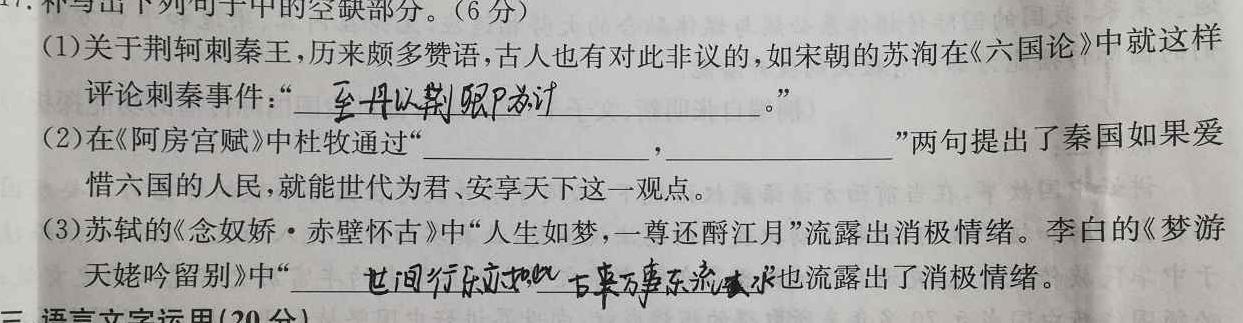 17.补写出下列句子中的空缺部分。(6分)
(1)关于荆轲刺秦王,历来颇多赞语,古人也有对此非议的,如宋朝的苏洵在《六国论》中就这样
评论刺秦事件:“ 至丹以荆 为计 。”
(2)在《阿房宫赋》中杜牧通过“ , ”两句提出了秦国如果爱
惜六国的人民,就能世代为君、安享天下这一观点。
(3)苏轼的《念奴娇·赤壁怀古》中“人生如梦,一尊还酹江月”流露出消极情绪。李白的《梦游
天姥吟留别》中“ 世间行乐亦如此 古来万事东流水也流露出了消极情绪。
三 语言文字运用(20分)